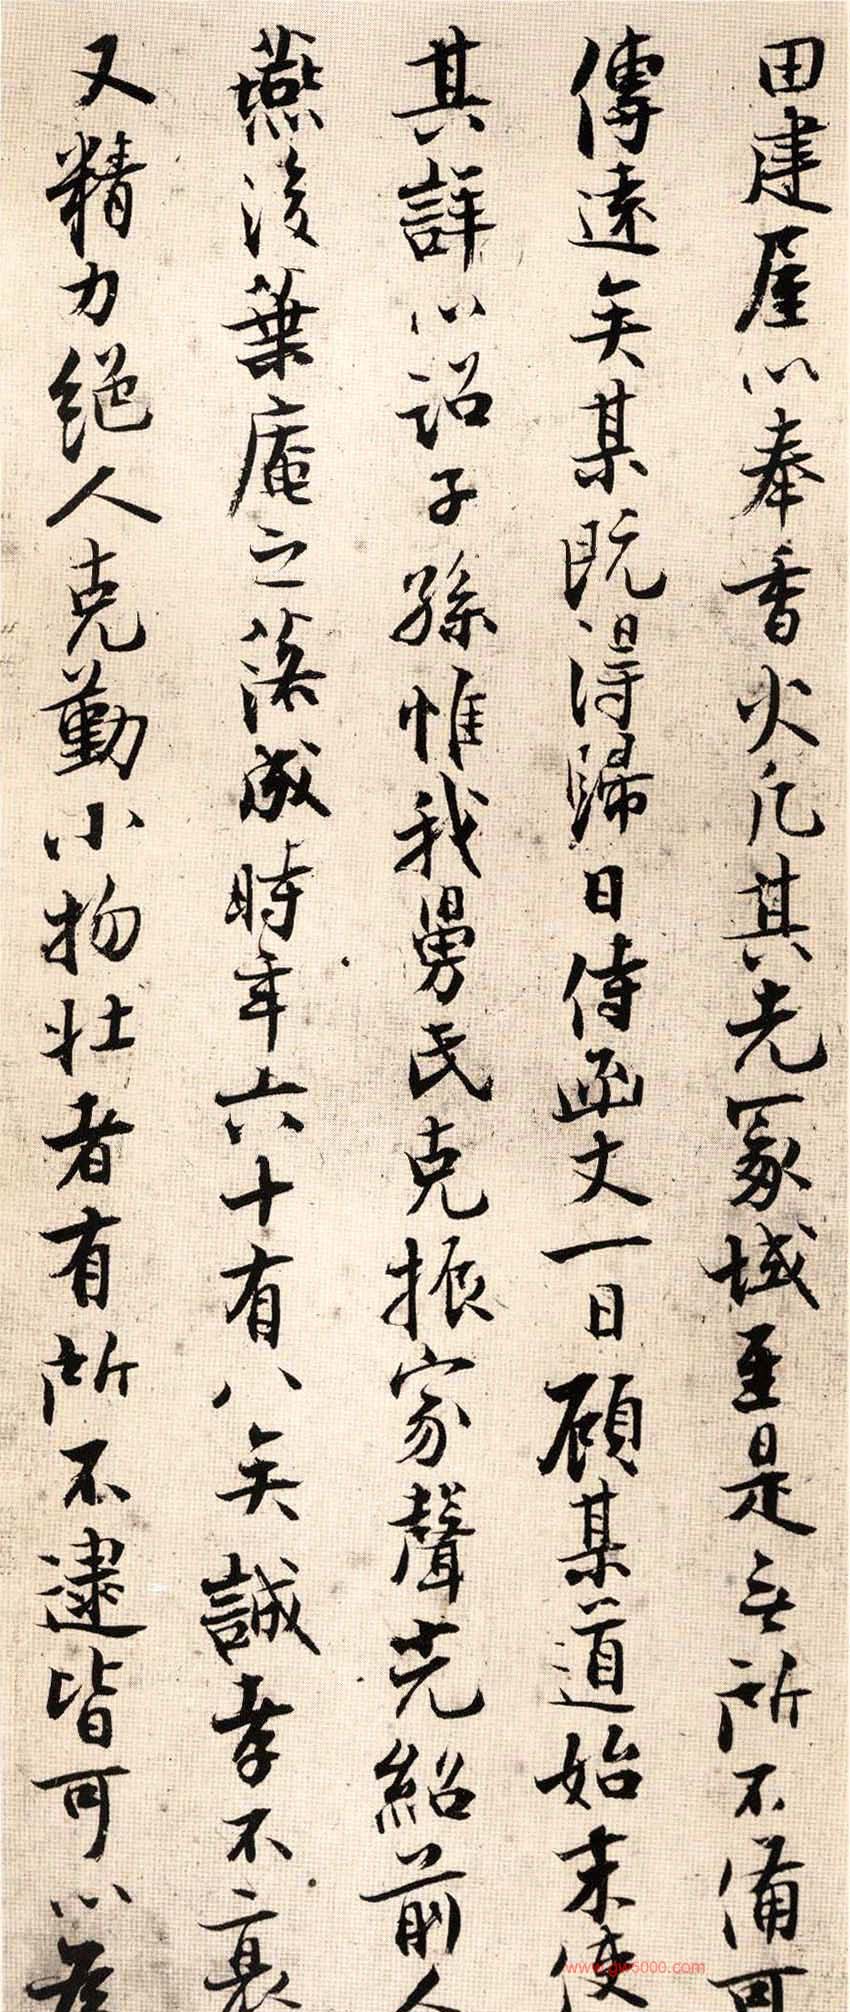 田建屋以奉香火凡其先冢域至是无所不備可
傳遠矣某既得歸日侍函丈一日顧某道始末使
其詳以詔子孫惟我舅氏克振家聲光紹前人
燕後葉庵之落成時年六十有八矣誠孝不衰
又精力絕人克勤小物壯者有所不逮皆可以為
www.gw5000.com